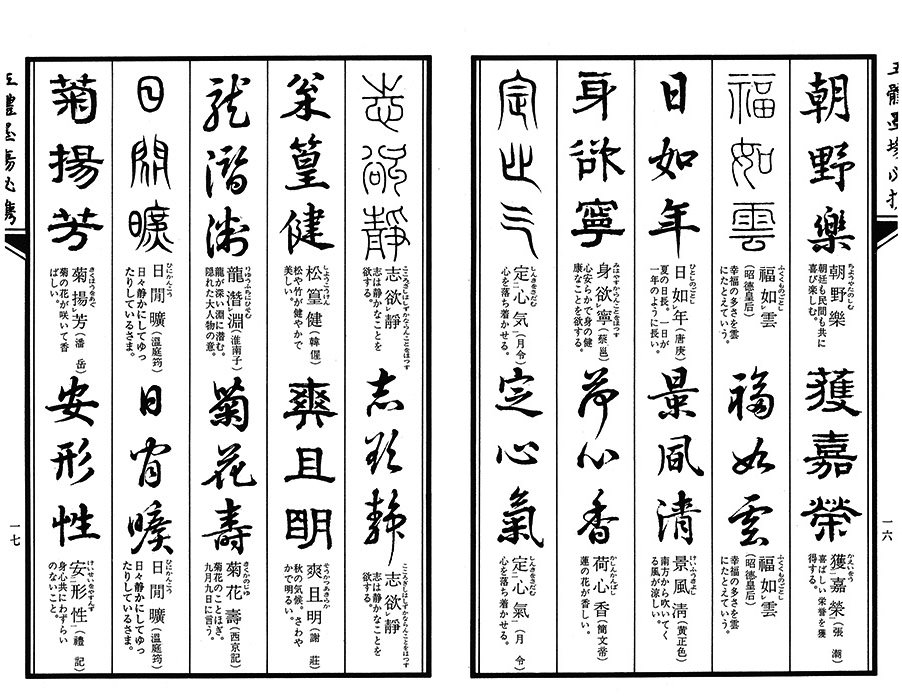 五體墨場必携
朝野樂
朝野樂
ちょうやたのしむ
朝廷も民間も共に
喜び楽しむ。
獲嘉榮
獲嘉榮(張 潮)
かえいをう
喜ばしい栄誉を獲
得する。
福如雲
福如雲
ふくくものごとし
(昭德皇后)
幸福の多さを雲
にたとえていう。
福如雲
福如雲
ふくくものごとし
(昭德皇后)
幸福の多さを雲
にたとえていう。
日如年
日如年(唐庚)
ひとしのごとし
夏の日長。一日が
一年のように長い。
景風清
景風清(黄正色)
けいふうきよし
南方から吹いてく
る風が涼しい。
身欲寧
身欲寧(蔡邕)
みはやすからんことをほっす
心安らかで身の健
康なことを欲する。
荷心香
荷心香(簡文帝)
かしんかんばし
蓮の花が香しい。
定心气
定心気(月令)
しんきをさだむ
心を落ち着かせる。
定心氣
定心氣(月令)
しんきをさだむ
心を落ち着かせる。
一六
志欲靜
志欲靜
こころざしはしずかならんことをほっす
志は静かなことを
欲する。
志欲静
志欲靜
こころざしはしずかならんことをほっす
志は静かなことを
欲する。
松篁健
松篁健(韓偓)
しょうこうけん
松や竹が健やかで
美しい。
爽且明
爽且明(謝 莊)
そうかつあきらか
秋の気候。さわや
かで明るい。
龍潛淵
龍潛淵(淮南子)
りゅうふちにひそむ
龍が深い淵に潜む。
隠れた大人物の意。
菊花壽
菊花壽(西京記)
きくかのじゅ
菊花のことほぎ。
九月九日に言う。
日閒曠
日閒曠(温庭筠)
ひにかんこう
日々静かにしてゆっ
たりしているさま。
日閒曠
日閒曠(温庭筠)
ひにかんこう
日々静かにしてゆっ
たりしているさま。
菊揚芳
菊揚芳(潘 岳)
きくほうをあぐ
菊の花が咲いて香
ばしい。
安形性
安形性(禮 記)
けいせいをやすんず
身心共にわずらい
のないこと。
一七
五體墨場必携